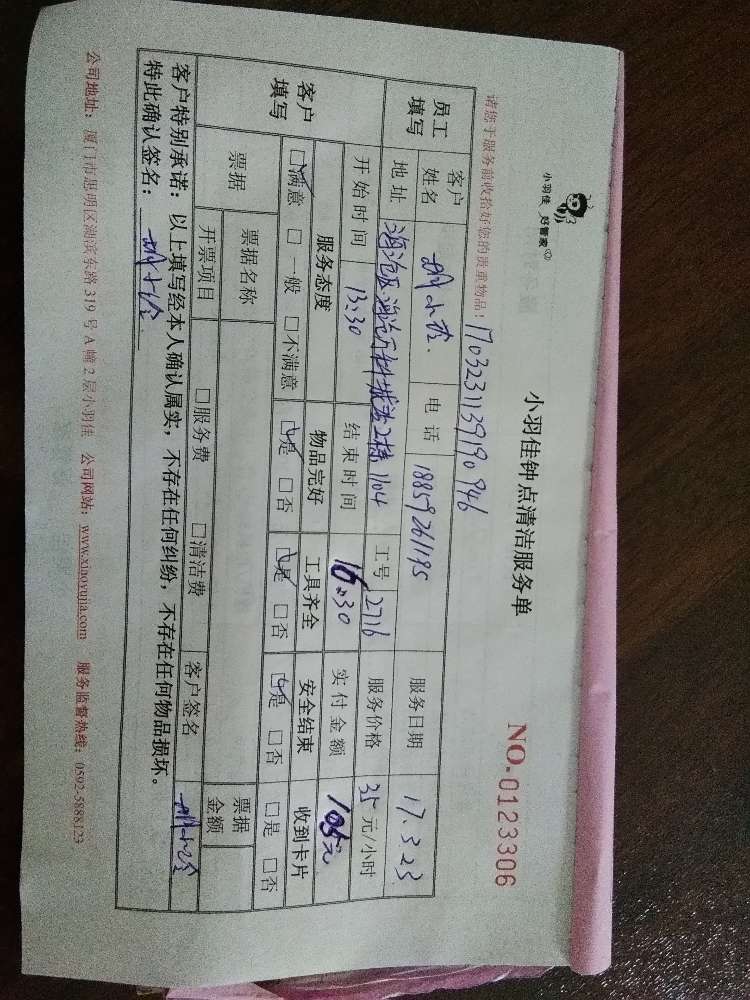 小羽佳 好管家
小羽佳钟点清洁服务单
NO.0123306
请您于服务前收拾好您的贵重物品！ 1703231139190946
员工填写 客户姓名 小玲 电话 18859261195 服务日期 17.3.23
地址 海沧区海沧万科城 2栋1104 工号 2716 服务价格 35元/小时
开始时间 13:30 结束时间 16:30 实付金额 105元
客户填写 服务态度 物品完好 工具齐全 安全结束 收到卡片
☑满意 □一般 □不满意 ☑是 □否 ☑是 □否 ☑是 □否 □是 □否
票据 票据名称 票据金额
开票项目 □服务费 □清洁费 客户签名
客户特别承诺：以上填写经本人确认属实，不存在任何纠纷，不存在任何物品损坏。
特此确认签名：
公司地址：厦门市思明区湖滨东路319号A幢2层小羽佳 公司网站：www.xiaoyujia.com 服务监督热线：0592-5888123